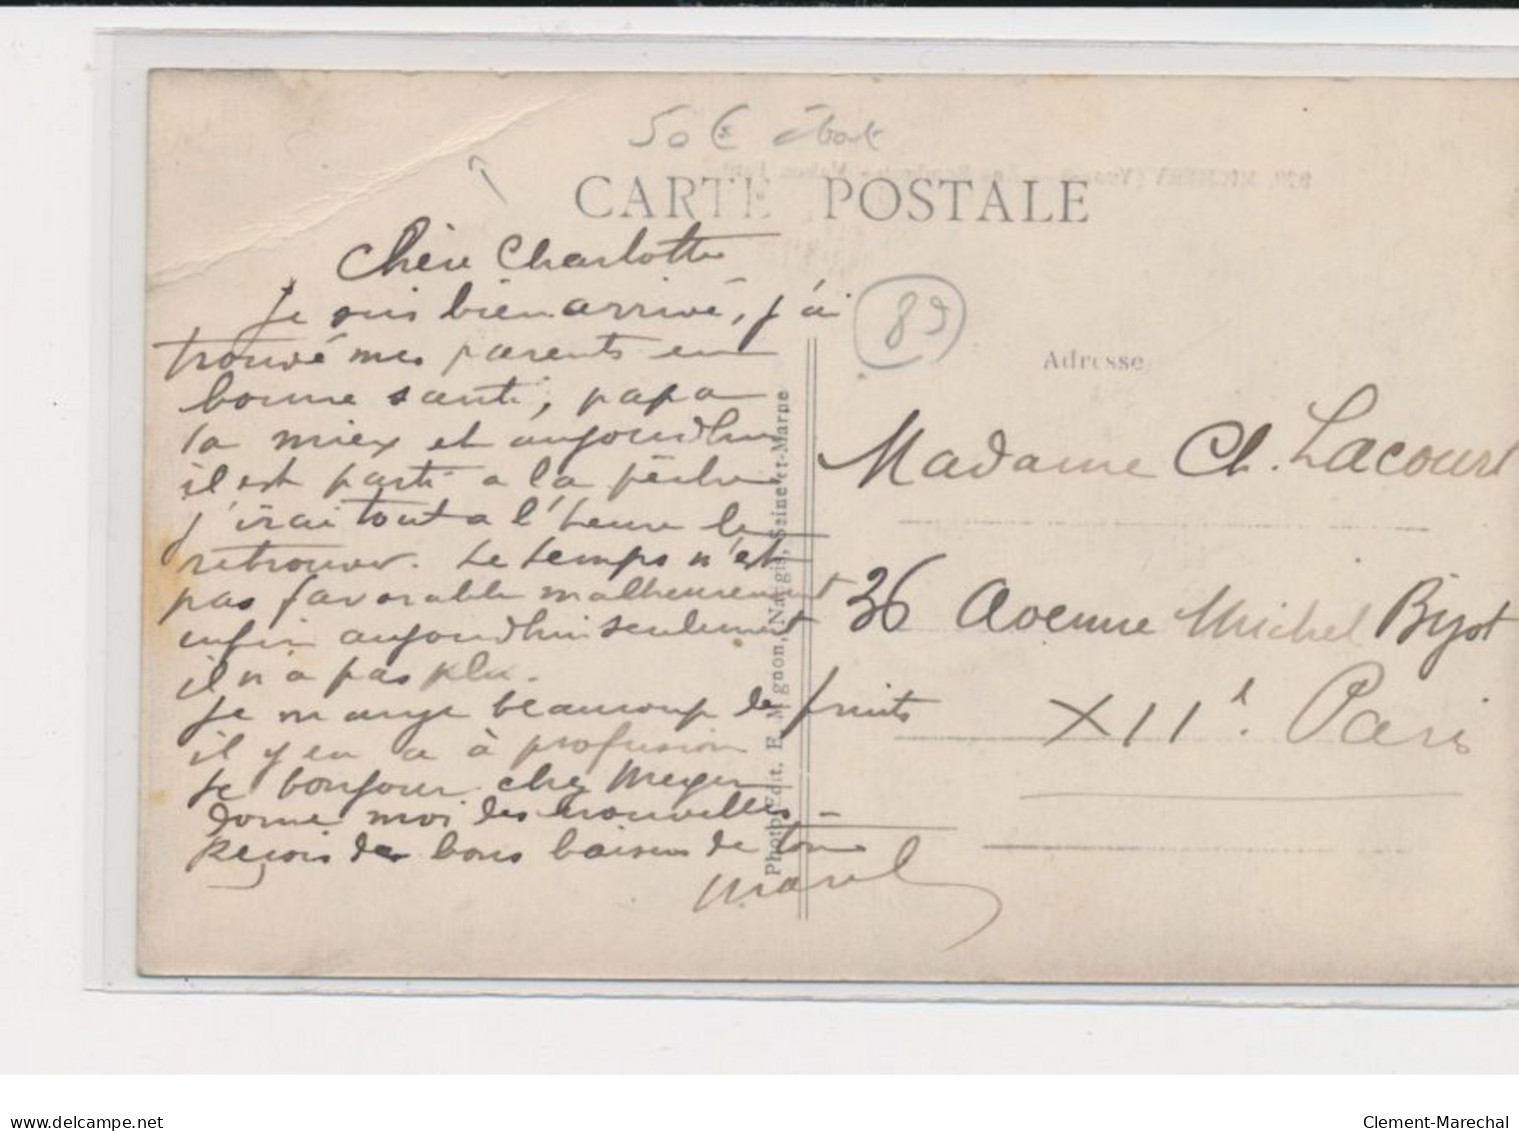 50 €
CARTE POSTALE
Chère Charlotte
Je suis bien arrivé, j'ai
trouvé mes parents en
bonne santé, papa
va mieux et aujourd'hui
il est parti a la pêche
j'irai tout a l'heure le
retrouver. Le temps n'est
pas favorable malheureusement
enfin aujourd'hui seulement
il n'a pas plu.
Je mange beaucoup de fruits
il y en a à profusion
Le bonjour chez Meyer
Donne moi des nouvelles
Reçois des bons baisers de ton
Marcel
Photo-Edit. E. Mignon, Nangis, Seine-et-Marne
89
Adresse
Madame Ch. Lacourt
36 Avenue Michel Bizot
XIIe. Paris
delcampe.net
Clement-Marechal